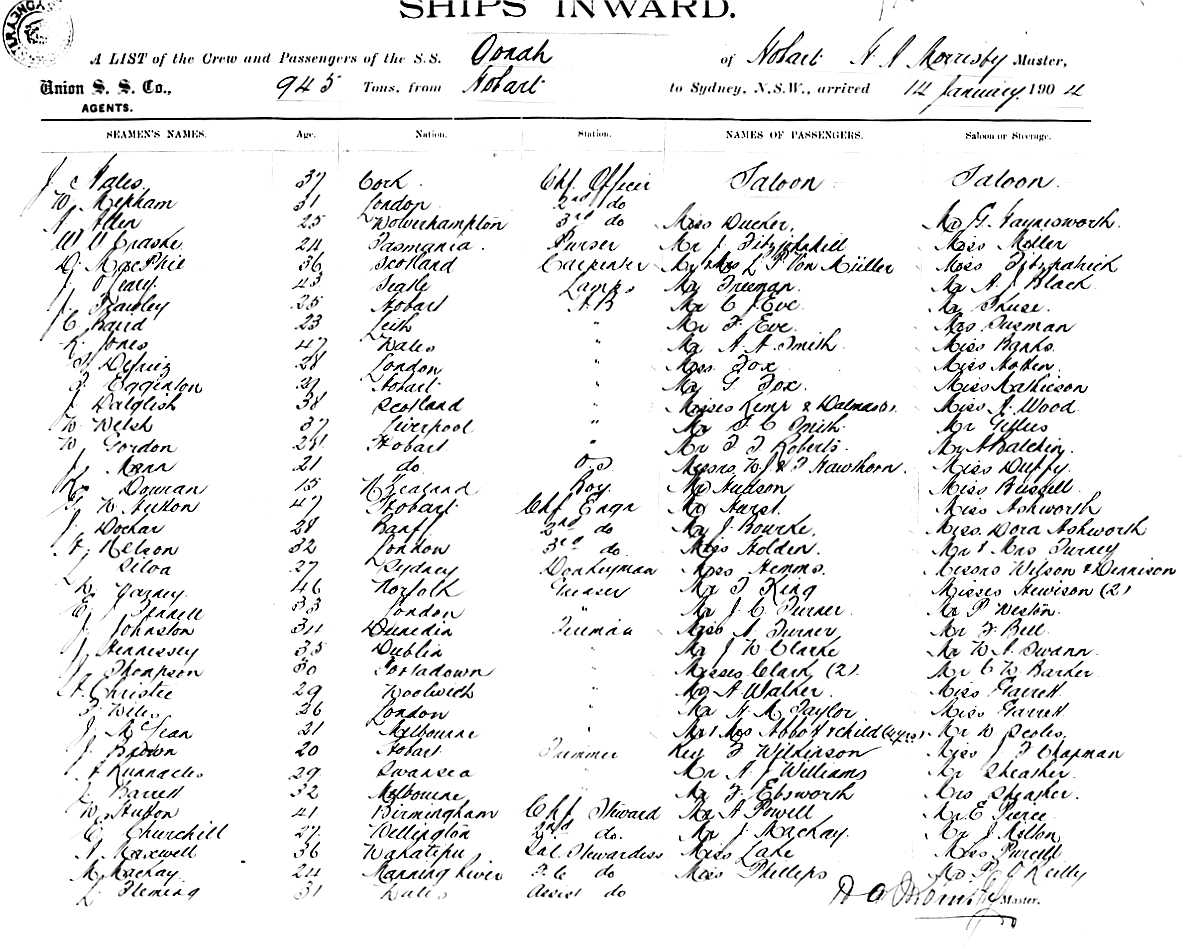 SHIPS INWARD.
A LIST of the Crew and Passengers of the S.S. Oonah of Hobart Morrisby Master,
Union S. S. Co., 945 Tons, from Hobart to Sydney, N.S.W., arrived 14 January 1904
AGENTS.
SEAMEN'S NAMES. Age. Nation. Station. NAMES OF PASSENGERS. Saloon or Steerage.
37 Cork Chf. Officer Saloon Saloon
W. Mepham 31 London 2nd do
J. Allen 25 Wolverhampton 3rd do Miss Ducker. Mr G. Haynesworth
24 Tasmania Purser Mr J. Miss Miller
D. MacPhie 36 Scotland Carpenter Mr & Mrs L. P. Von Müller Miss Fitzpatrick
J. O'Leary 43 Lamps Mr Freeman. Mr A. J. Black
J. Frawley 25 Hobart A.B. Mr C. J. Eve Mr
J. C. Baird 23 Leith " Mr F. Eve Mrs
Jones 47 Wales " Mr A. A. Smith Miss Banks
28 London " Miss Fox Miss
Egginton 29 Hobart " Mr G. Fox Miss Mathieson
J. Dalglish 38 Scotland " Misses Kemp & Miss J. Wood
W. Welsh 37 Liverpool " Mr S. C. Smith Mr Gillies
W. Gordon 28 Hobart " Mr F. F. Roberts Mr A Balchin
J. Mann 21 do O.S. Messrs W. J. & F. Hawthorn. Miss Duffy
15 N Zealand Boy Mr Hudson Miss Russell
W Hutton 47 Hobart Chf Engr Mr Hurst Miss Ashworth
J. Dochar 28 Banff 2nd do Mr J. Bourke. Miss Dora Ashworth
Nelson 32 London 3rd do. Miss Holden. Mr & Mrs Turney
Silva 27 Sydney Donkeyman Miss Hemms. Messrs Wilson & Dennison
46 Norfolk Greaser Mr F King Misses Hewison (2)
Pennell 33 London " Mr J. C. Turner Mr P. Weston
J. Johnston 34 Dunedin Fireman Miss A. Turner Mr F. Bell
J. Hennessey 35 Dublin " Mr J W Clarke Mr W. A. Swann
Thompson 30 Portadown " Misses Clark (2) Mr C W Barker
Christie 29 Woolwich " Mr A Walker Miss Garrett
26 London " Mr H. M. Taylor Miss Garrett
J. McLean 21 Melbourne " Mr & Mrs Abbott & child Mr W Scoles
J. Brown 20 Hobart Trimmer Rev F Wilkinson Miss J. F. Chapman
Runnacles 29 Swansea " Mr A J Williams Mr Sheather
J. Barrett 32 Melbourne " Mr F. Ebsworth Mrs Sheather.
W. Hutton 41 Birmingham Chf Steward Mr A Powell Mr E Pierce
Churchill 27 Wellington 2nd do. Mr J. Mackay Mr J. Mollon
Maxwell 36 Wakatipu Sal. Stewardess Miss Lake Miss Purcell
M. Mackay 24 Manning River do Miss Phillips O'Reilly
L. Fleming 31 Wales Assist do
Master.